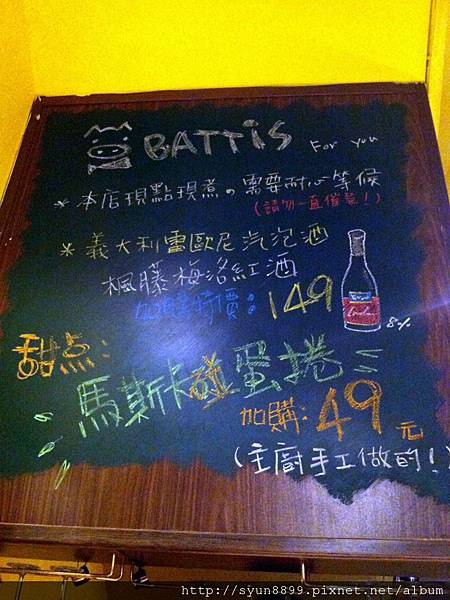 BATTiS For you
* 本店現點現煮。需要耐心等候
(請勿一直催菜!)
* 義大利雷歐尼汽泡酒
楓藤梅洛紅酒
加購特價: 149
8%
甜点:
馬斯卡碰蛋捲
加購: 49元
(主廚手工做的!)
http://syun8899.pixnet.net/album